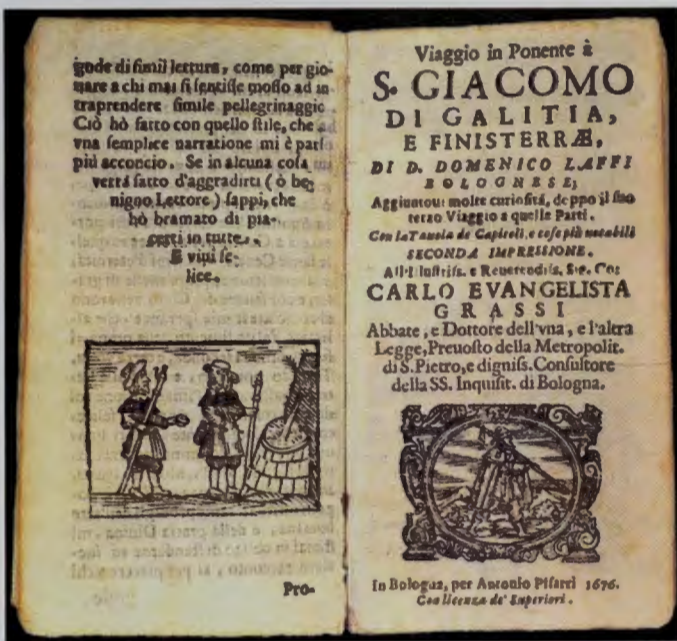 gode di simil lettura, come per gio-
uare a chi mai si sentisse mosso ad in
traprendere simile pellegrinaggio
Ciò hò fatto con quello stile, che a
vna semplice narratione mi è parso
più acconcio. Se in alcuna cosa
verrà fatto d'aggradirti (ò be-
nigno Lettore) sappi, che
hò bramato di pia-
certi in tutte.
E viui fe-
lice.
Pro-
Viaggio in Ponente à
S. GIACOMO
DI GALITIA,
E FINISTERRÆ,
DI D. DOMENICO LAFFI
BOLOGNESE,
Aggiuntoui molte curiosità, doppo il suo
terzo Viaggio a quelle Parti.
Con la Tauola de Capitoli, e cose più notabili
SECONDA IMPRESSIONE.
All'Illustriss. e Reuerendiss. Sig. Co:
CARLO EVANGELISTA
GRASSI
Abbate, e Dottore dell'vna, e l'altra
Legge, Preuosto della Metropolit.
di S. Pietro, e digniss. Consultore
della SS. Inquisit. di Bologna.
In Bologna, per Antonio Pisarri 1676.
Con licenza de' Superiori.